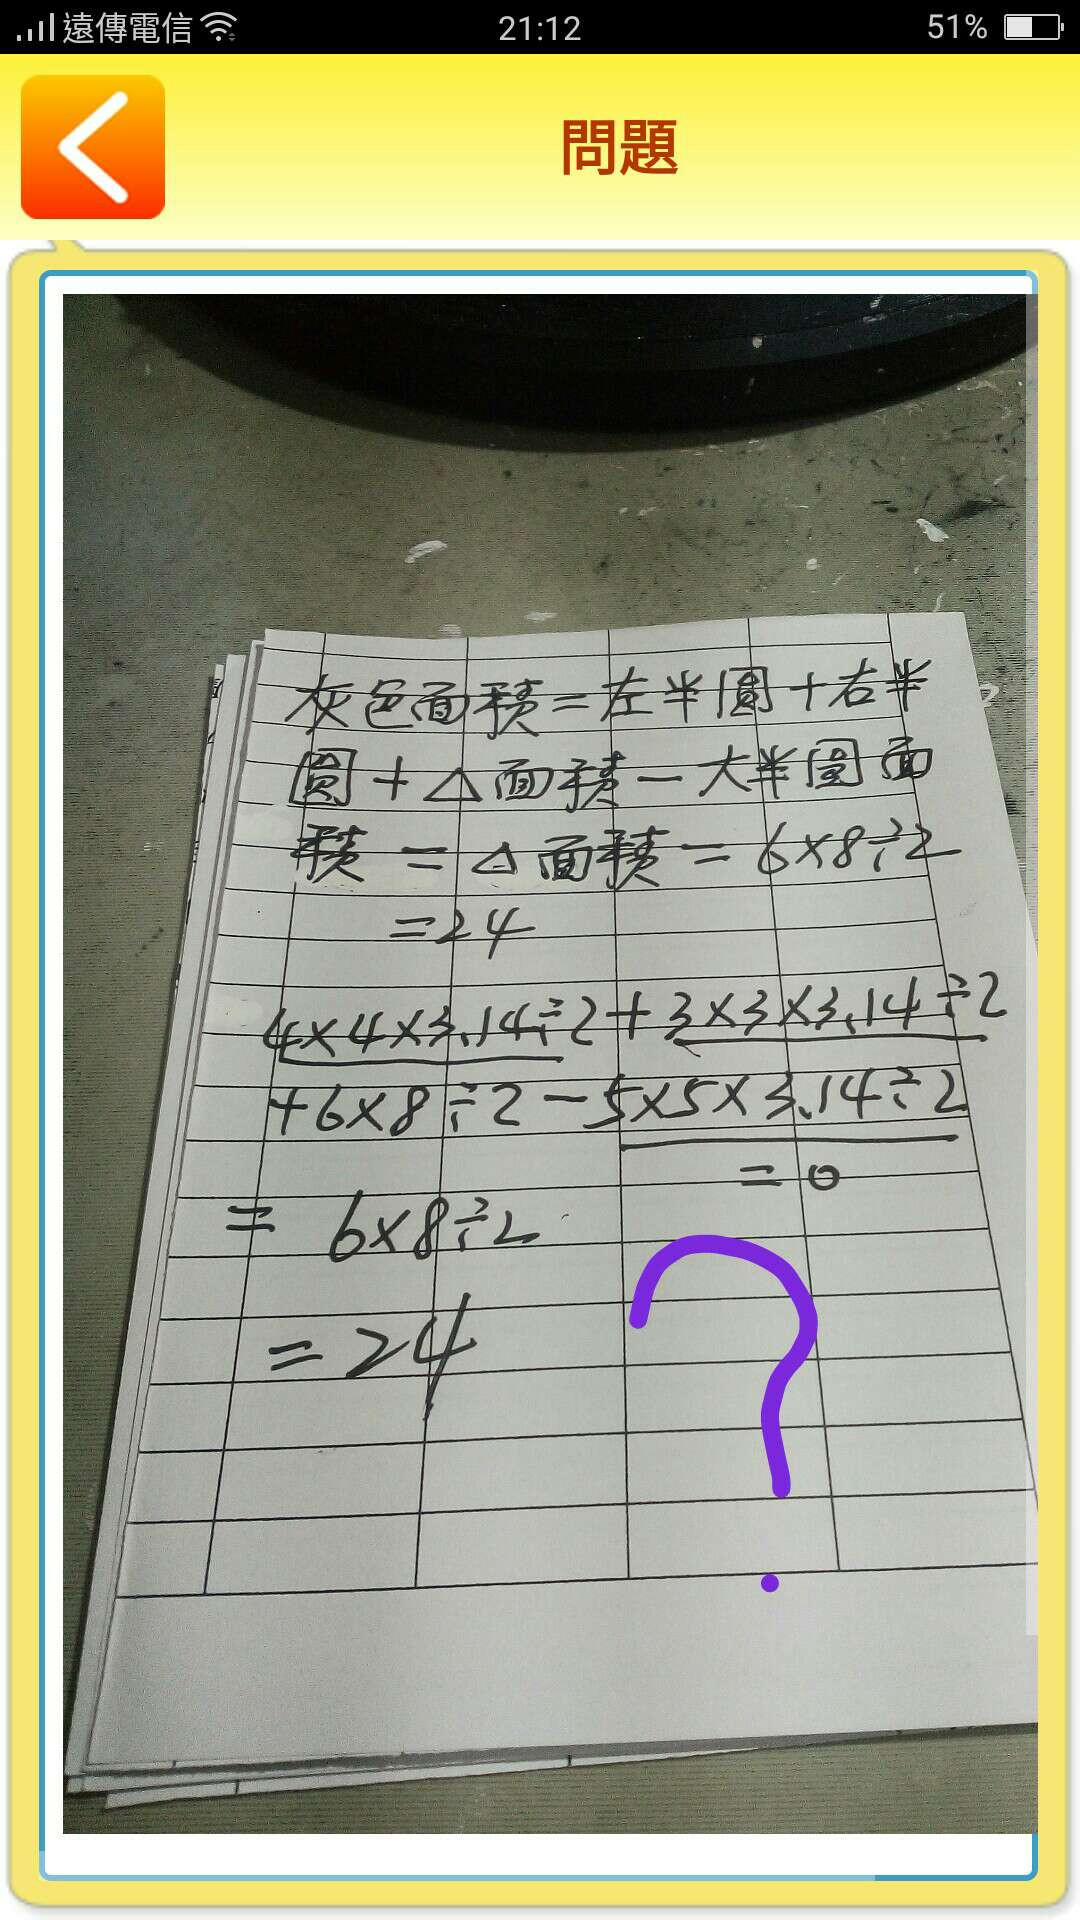 遠傳電信 21:12 51%
問題
灰色面積=左半圓+右半
圓+△面積-大半圓面
積=△面積=6×8÷2
=24
4×4×3.14÷2+3×3×3.14÷2
+6×8÷2-5×5×3.14÷2
=0
= 6×8÷2
=24
?